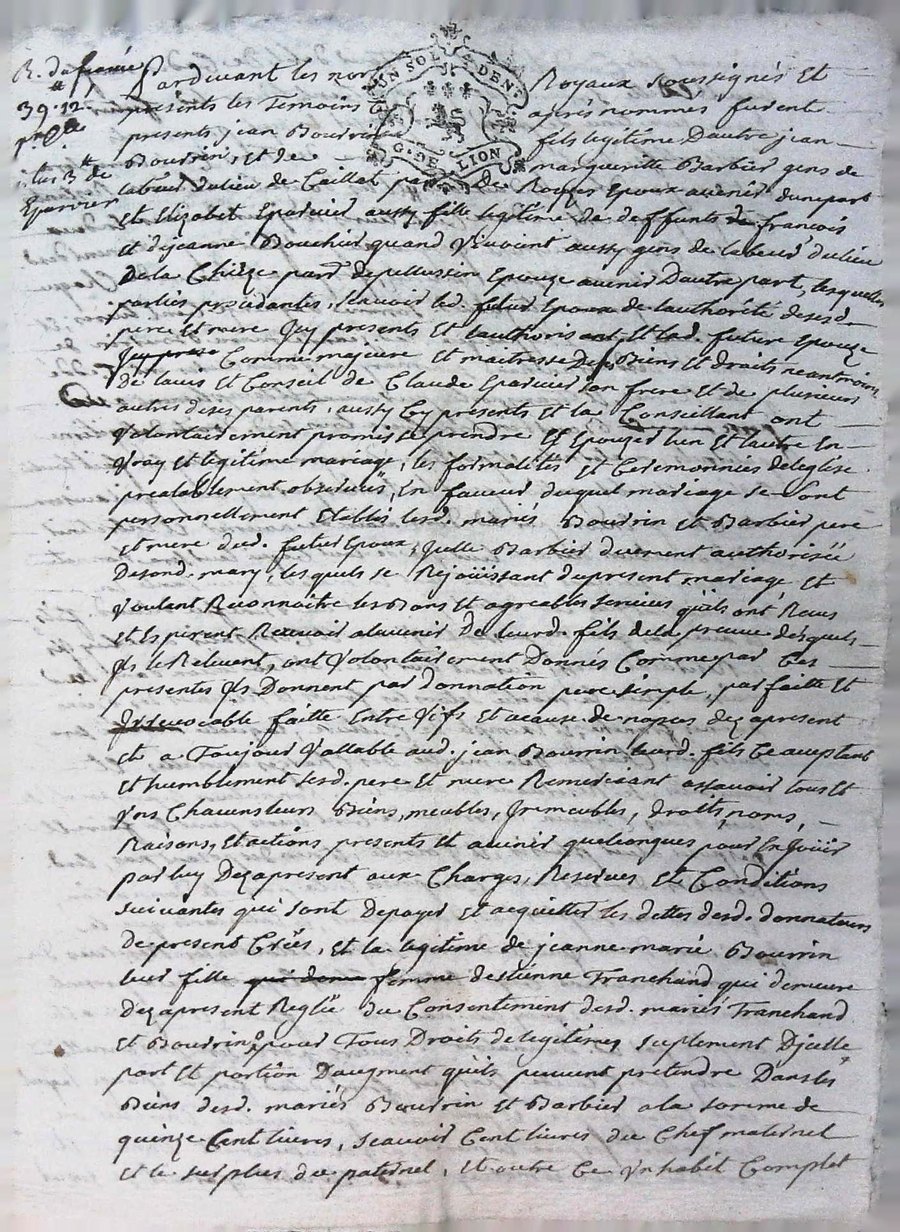 UN SOL DEN.
G. DE LION
39 # 12
Pardevant les nor Royaux soussignés Et
presents les Temoins Et aprés nommés furent
presents jean Bourrin fils legitime Dautre jean
Bourrin, Et de marguerite Barbier gens de
labeur dulieu de Caillat par de Epoux avenir dunepart
Et Elizabet Eparvier aussy fille legitime de deffunts de francois
Et djeanne Bouchier quand Vivoient aussy gens de labeur dulieu
De la Chieze parr. depellussin Epouze avenir Dautre part, lesquelles
parties procedantes, scavoir led. futur Epoux de lauthorité desesd.
pere Et mere Icy presents Et lauthorisant, Et lad. future Epouze
Comme majeure Et maitresse Des Biens Et droits neantmoins
de lavis Et Conseil de Claude Eparvier son frere Et de plusieurs
autres deses parents, aussy Cy presents Et la Conseillant ont
Volontairement promis se prendre Et Epouzer lun Et lautre En
Vray Et legitime mariage, les formalités Et Ceremonnies deleglise
prealablement observées, En faveur duquel mariage se sont
personnellement Etablis lesd. mariés Bourrin Et Barbier pere
Et mere dud. futur Epoux, Jcelle Barbier duement authorisée
Desond. mary, lesquels se Rejoüissant dupresent mariage Et
Voulant Reconnoitre les Bons Et agreables services qúils ont Reçus
Et Esperent Recevoir alavenir De leurd. fils dela preuve desquels
Jls le Relevent, ont Volontairement Donnés Comme par Ces
presentes Jls Donnent par donnation pure simple, parfaite Et
Irrevocable faitte Entre Vifs Et acause de nopces dez apresent
Et a Toujour Vallable aud. jean Bourrin leurd. fils Ce acceptant
Et humblement sesd. pere Et mere Remerciant assavoir tous Et
Vns Chacuns leurs Biens, meubles, Jmmeubles, droits, noms,
Raisons, Et actions presents Et avenir quelconques, pour En Joüir
par luy Dez apresent aux Charges, Reserves Et Conditions
suivantes qui sont Depayer Et acquitter les dettes desd. donnateurs
De present Crées, Et la legitime de jeanne marie Bourrin
leur fille femme destienne Tranchand qui demeure
dez apresent Reglée du Consentement desd. mariés Tranchand
Et Bourrin pour Tous Droits de legitimes, suplement Djcelle
part Et portion Daugment qúils peuvent pretendre Dans les
Biens desd. mariés Bourrin Et Barbier ala somme de
quinze Cent livres, scavoir Cent livres du Chef maternel
Et le surplus du paternel, Et outre Ce Vn habit Complet